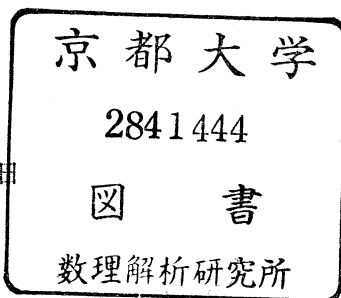 京都大学
2841444
図書
数理解析研究所